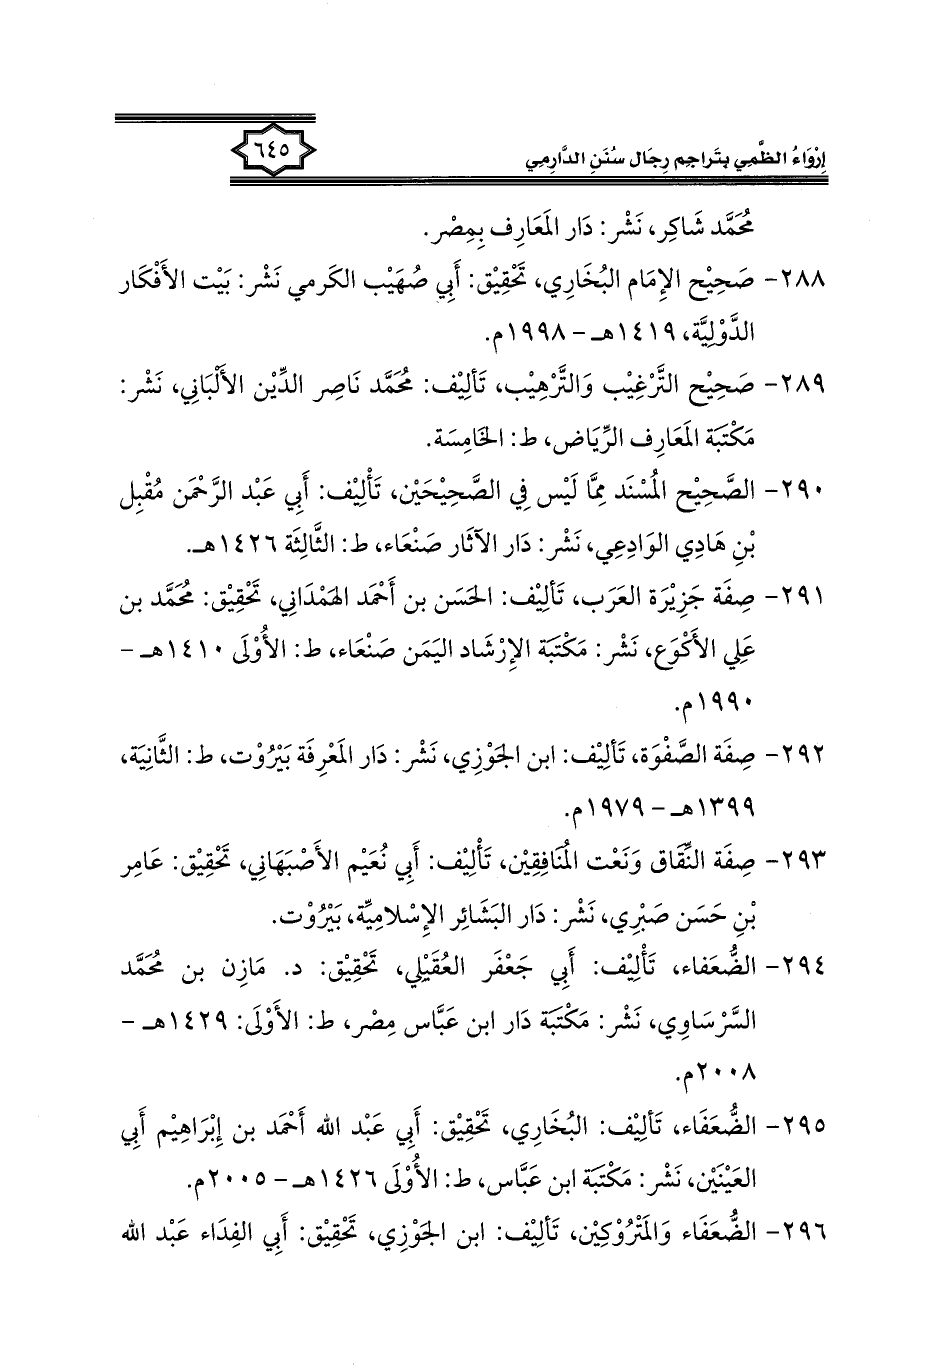 إِرْوَاءُ الظَّمِي بِتَرَاجِم رِجَال سُنَن الدَّارِمِي
٦٤٥
مُحَمَّد شَاكِر، نَشْر: دَار المَعَارِف بِمِصْر.
٢٨٨- صَحِيْح الإِمَام البُخَارِي، تَحْقِيْق: أَبِي صُهَيْب الكَرمي نَشْر: بَيْت الأَفْكَار
الدَّوْلِيَّة، ١٤١٩هـ - ١٩٩٨م.
٢٨٩- صَحِيْح التَّرْغِيْب وَالتَّرْهِيْب، تَألِيْف: مُحَمَّد نَاصِر الدِّيْن الأَلْبَانِي، نَشْر:
مَكْتَبَة المَعَارِف الرِّيَاض، ط: الخَامِسَة.
٢٩٠- الصَّحِيْح المُسْنَد مِمَّا لَيْس فِي الصَّحِيْحَيْن، تَأْلِيْف: أَبِي عَبْد الرَّحْمَن مُقْبِل
بْنِ هَادِي الوَادِعِي، نَشْر: دَار الآثَار صَنْعَاء، ط: الثَّالِثَة ١٤٢٦هـ.
٢٩١- صِفَة جَزِيْرَة العَرَب، تَألِيْف: الحَسَن بن أَحْمَد الهَمْدَانِي، تَحْقِيْق: مُحَمَّد بن
عَلِي الأَكْوَع، نَشْر: مَكْتَبَة الإِرْشَاد اليَمَن صَنْعَاء، ط: الأُوْلَى ١٤١٠هـ -
١٩٩٠م.
٢٩٢- صِفَة الصَّفْوَة، تَألِيْف: ابن الجَوْزِي، نَشْر: دَار المَعْرِفَة بَيْرُوْت، ط: الثَّانِيَة،
١٣٩٩هـ - ١٩٧٩م.
٢٩٣- صِفَة النِّقَاق وَنَعْت المُنَافِقِيْن، تَأْلِيْف: أَبِي نُعَيْم الأَصْبَهَانِي، تَحْقِيْق: عَامِر
بْنِ حَسَن صَبْرِي، نَشْر: دَار البَشَائِر الإِسْلامِيَّة، بَيْرُوْت.
٢٩٤- الضُّعَفاء، تَأْلِيْف: أَبِي جَعْفَر العُقَيْلِي، تَحْقِيْق: د. مَازِن بن مُحَمَّد
السَّرْسَاوِي، نَشْر: مَكْتَبَة دَار ابن عَبَّاس مِصْر، ط: الأَوْلَى: ١٤٢٩هـ -
٢٠٠٨م.
٢٩٥- الضُّعَفَاء، تَألِيْف: البُخَارِي، تَحْقِيْق: أَبِي عَبْد الله أَحْمَد بن إِبْرَاهِيْم أَبِي
العَيْنَيْن، نَشْر: مَكْتَبَة ابن عَبَّاس، ط: الأُوْلَى ١٤٢٦هـ - ٢٠٠٥م.
٢٩٦- الضُّعَفَاء وَالمَتْرُوْكِيْن، تَألِيْف: ابن الجَوْزِي، تَحْقِيْق: أَبِي الفِدَاء عَبْد الله